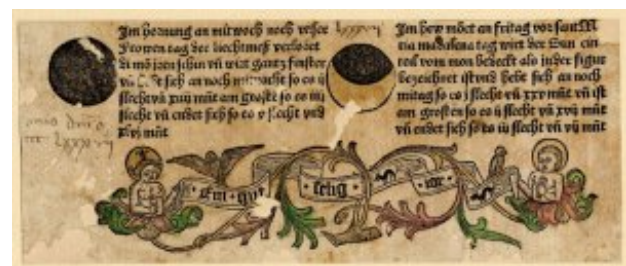 Im hornung an mitwoch noch unser
Frowen tag der liechtmeß verlöret
di mō jren schin vñ wirt gantz finster
vñ sich an noch mitnacht so es ij
slecht vñ xviij mūt am grosse so es iiij
slecht vñ endet sich so es v slecht vnd
xlvj mūt
lxxxvij
Im how mōet an fritag vor sant M
ria madalena tag wirt der Sun ein
teil vom mon bedeckt als in der figur
bezeichnet ist vnd hebt sich an noch
mitag so es j slecht vñ xxv mūt vñ ist
am grosten so es ij slecht vñ xvij mūt
vñ endet sich so es iij slecht vñ vij mūt
anno dnī
lxxxvij
Ein gut selig iar